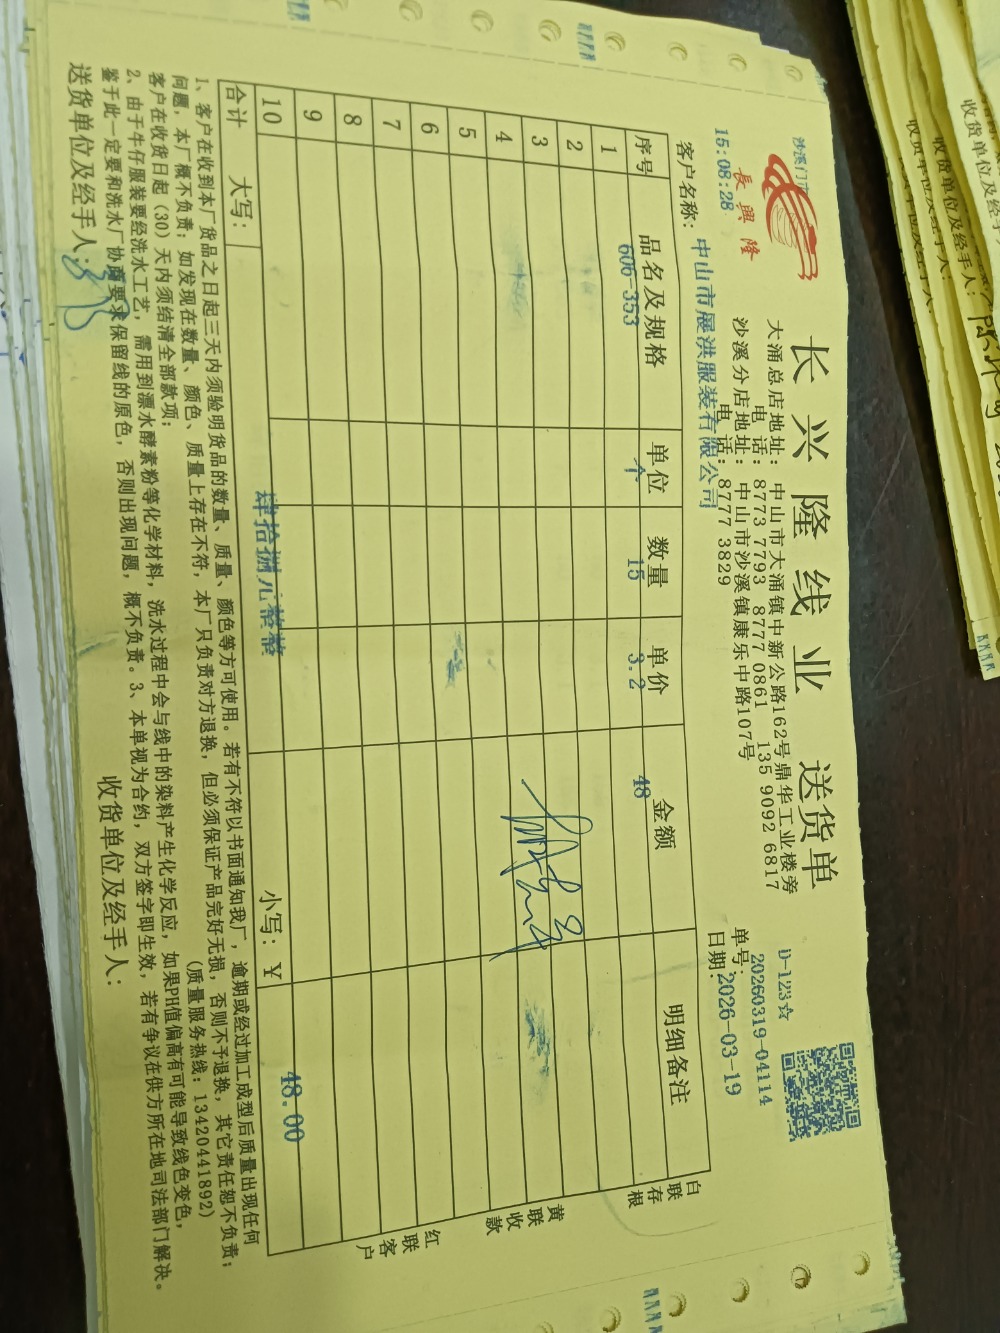 长兴隆线业 送货单
長興隆
沙溪门市
15:08:28
大涌总店地址：中山市大涌镇中新公路162号鼎华工业楼旁
电 话：8773 7793 8777 0861 135 9092 6817
沙溪分店地址：中山市沙溪镇康乐中路107号
电 话：8777 3829
D-123☆
单号：20260319-04114
日期：2026-03-19
客户名称：中山市展洪服装有限公司
序号 品名及规格 单位 数量 单价 金额 明细备注
1 606-353 个 15 3.2 48
2
3
4
5
6
7
8
9
10
合计 大写：肆拾捌元整整 小写：￥ 48.00
白联存根
黄联收款
红联客户
1、客户在收到本厂货品之日起三天内须验明货品的数量、质量、颜色等方可使用。若有不符以书面通知我厂，逾期或经过加工成型后质量出现任何
问题，本厂概不负责；如发现在数量、颜色、质量上存在不符，本厂只负责对方退换，但必须保证产品完好无损，否则不予退换，其它责任恕不负责；
客户在收货日起（30）天内须结清全部款项； （质量服务热线：13420441892）
2、由于牛仔服装要经洗水工艺，需用到漂水酵素粉等化学材料，洗水过程中会与线中的染料产生化学反应，如果PH值偏高有可能导致线色变色，
鉴于此一定要和洗水厂协商要求保留线的原色，否则出现问题，概不负责。3、本单视为合约，双方签字即生效，若有争议在供方所在地司法部门解决。
送货单位及经手人： 收货单位及经手人：
收货单位及经手人：
收货单位及经手人：
收货单位及经手人：